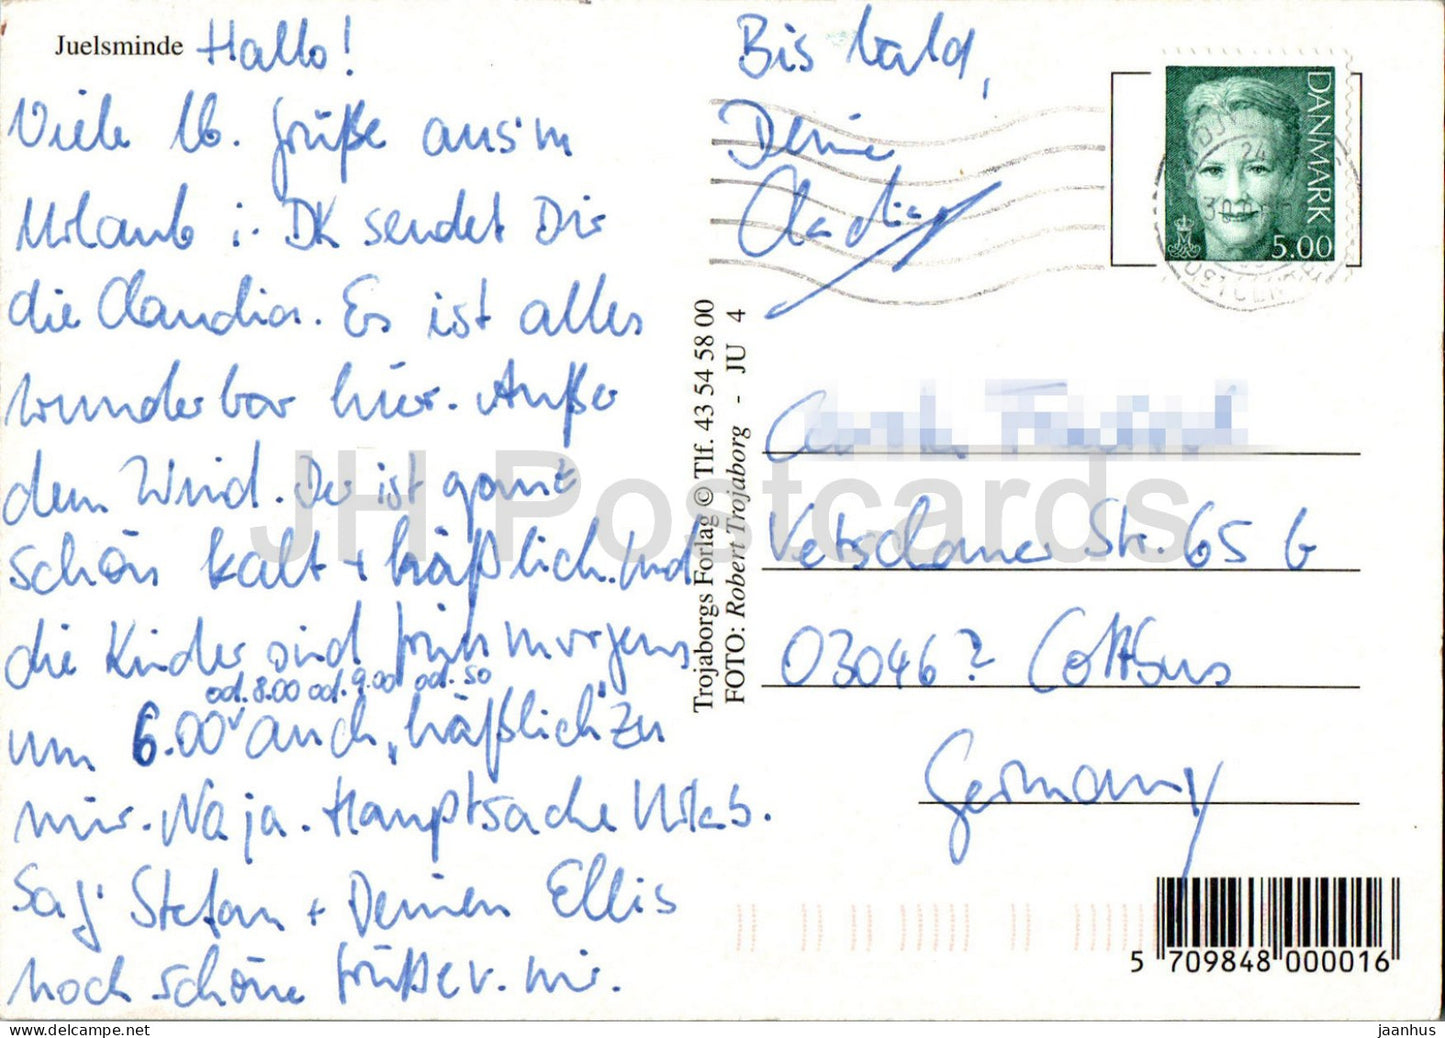 Juelsminde Hallo!
Viele lb. Grüße aus'm
Urlaub i. DK sendet Dir
die Claudia. Es ist alles
wunderbar hier. Außer
dem Wind. Der ist ganz
schön kalt + häßlich. Und
die Kinder sind früh morgens
od. 8.00 od. 9.00 od. so
um 6.00 auch „häßlich" zu
mir. Na ja. Hauptsache Urlaub.
Sag' Stefan + Deinen Ellis
noch schöne Grüße v. mir.
Bis bald,
Deine
Claudia
Trojaborgs Forlag © Tlf. 43 54 58 00
FOTO: Robert Trojaborg - JU 4
DANMARK
5.00
Vetschauer Str. 65 G
03046? Cottbus
Germany
5 709848 000016
JH Postcards
https://www.jhpostcards.com
jaanhus